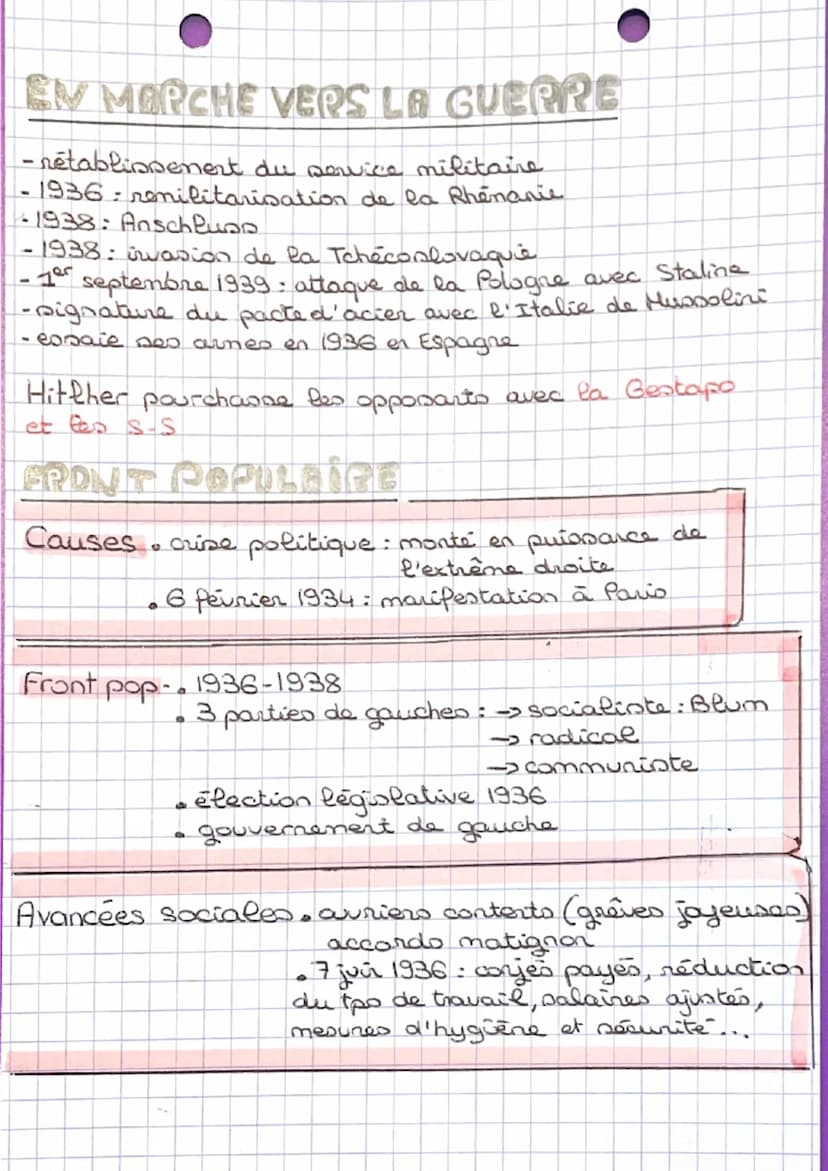 EN MARCHE VERS LA GUERRE
- rétablissement du service militaire
- 1936 : remilitarisation de la Rhénanie
- 1938 : Anschluss
- 1938 : invasion de la Tchécoslovaquie
- 1er septembre 1939 : attaque de la Pologne avec Staline
- signature du pacte d'acier avec l'Italie de Mussolini
- essaie ses armes en 1936 en Espagne
Hitlher pourchasse les opposants avec la Gestapo
et les S-S
FRONT POPULAIRE
Causes • crise politique : monté en puissance de
l'extrême droite
• 6 février 1934 : manifestation à Paris
Front pop- • 1936-1938
• 3 parties de gauches : → socialiste : Blum
→ radical
→ communiste
• élection législative 1936
• gouvernement de gauche
Avancées sociales • ouvriers contents (grêves joyeuses)
accords matignon
• 7 juin 1936 : conjés payés, réduction
du tps de travail, salaires ajustés,
mesures d'hygiène et sécurité...